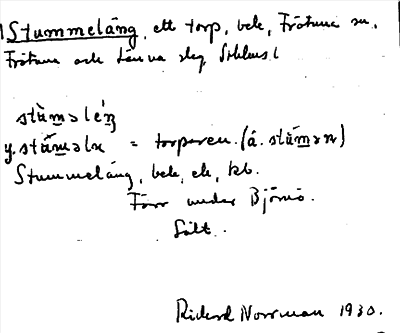 Stummeläng, ett torp, bek, Frötuna sn.
Frötuna och Länna slg
stùmǝléŋ
y. stùmǝlx = torparen. (á. stùmǝn)
Stummeläng, bek, ek, kb.
Förr under Björnö.
Sålt.
Rickard Norrman 1930.